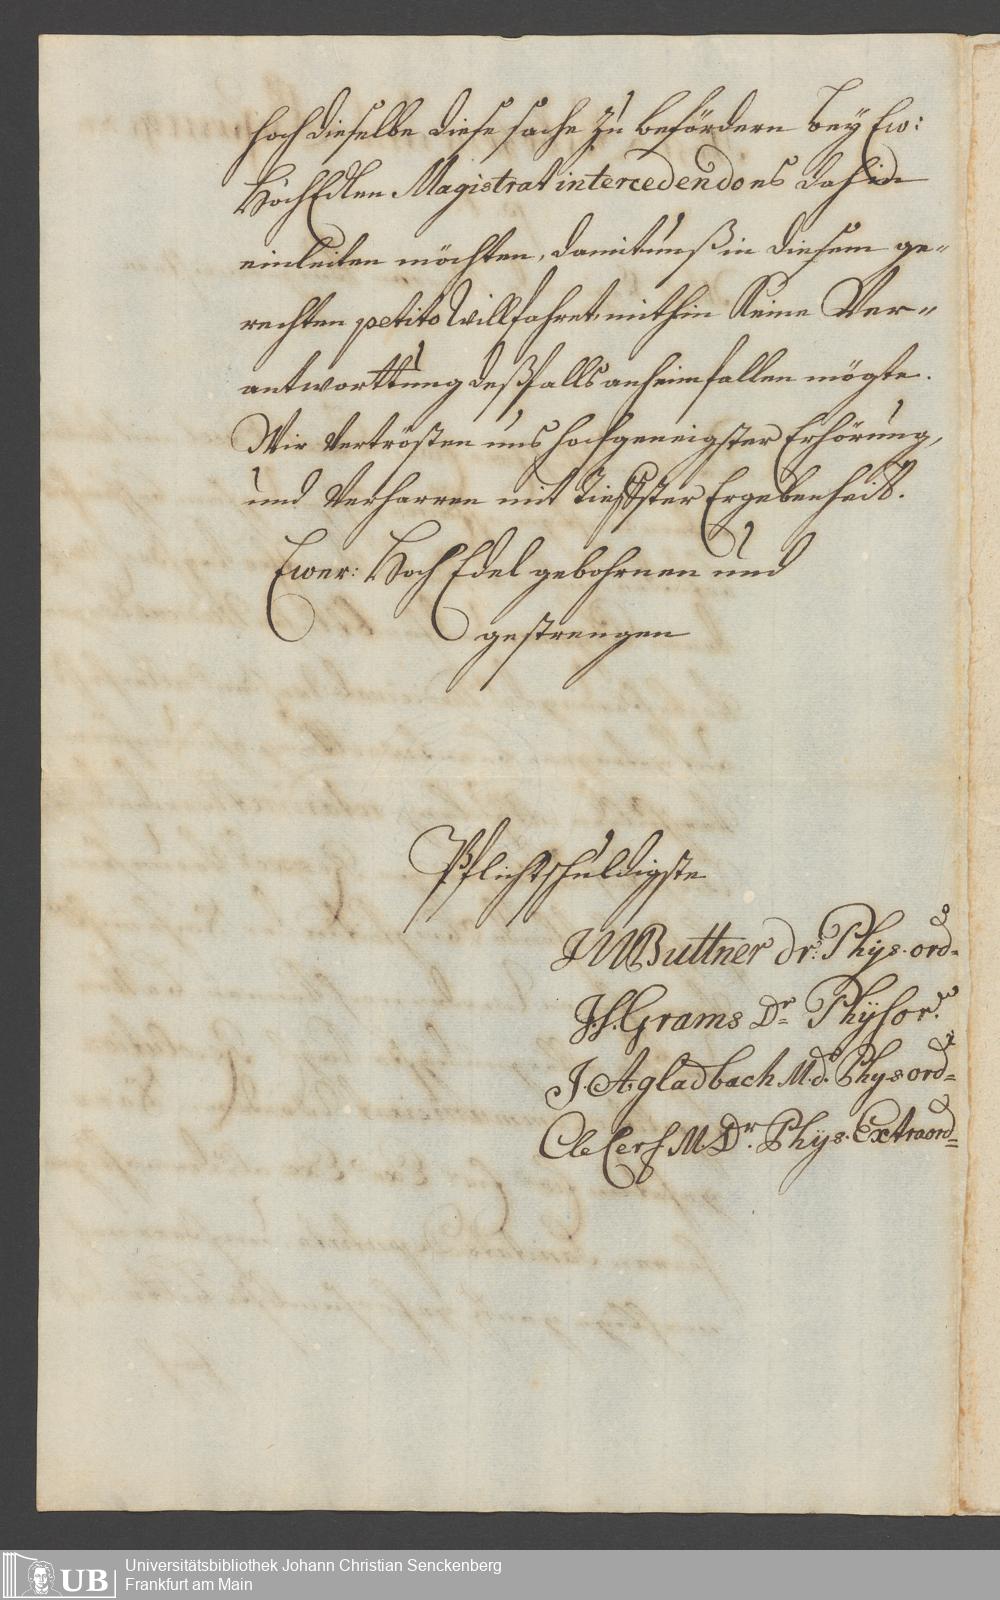 hoch dieselbe diese sache zu befördern bey Ew:
HochEdlen Magistrat intercedendo es dahin
einleiten möchten, damit unß in diesem ge-
rechten petito Willfahret, mithin Keine Ver-
antworttung deßfalls anheimfallen mögte.
Wir Vertrösten uns hochgeneigster Erhörung,
und Verharren mit tieffster Ergebenheit.
Ewer: Hoch Edel gebohrnen und
gestrengen
Pflichtschuldigste
JMButtner Dr: Phys. ord=
J.H. Grams Dr Phÿs or.
J. A. gladbach M.d. Phys ord=
C le Cerf M.Dr. Phÿs. Extraord=
UB
Universitätsbibliothek Johann Christian Senckenberg
Frankfurt am Main